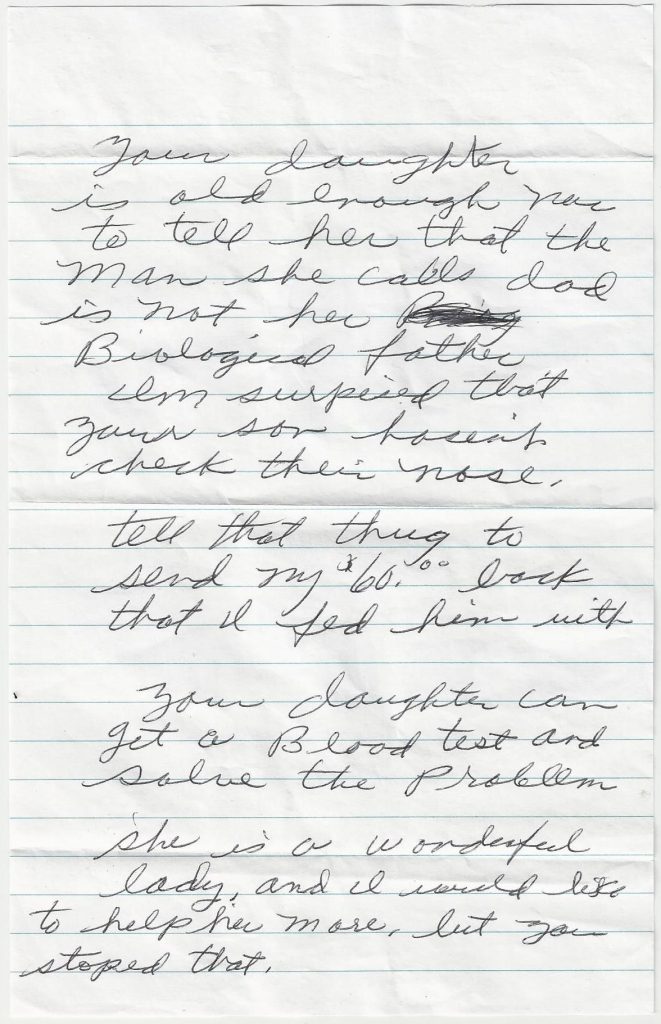 Your daughter
is old enough now
to tell her that the
Man she calls dad
is not her
Biological father
I'm surpised that
your son hasen't
check their nose.
tell that thug to
send my $60.00 back
that I fed him with
Your daughter can
get a Blood test and
solve the Problem
she is a wonderful
lady, and I would like
to help her more, but you
stoped that.